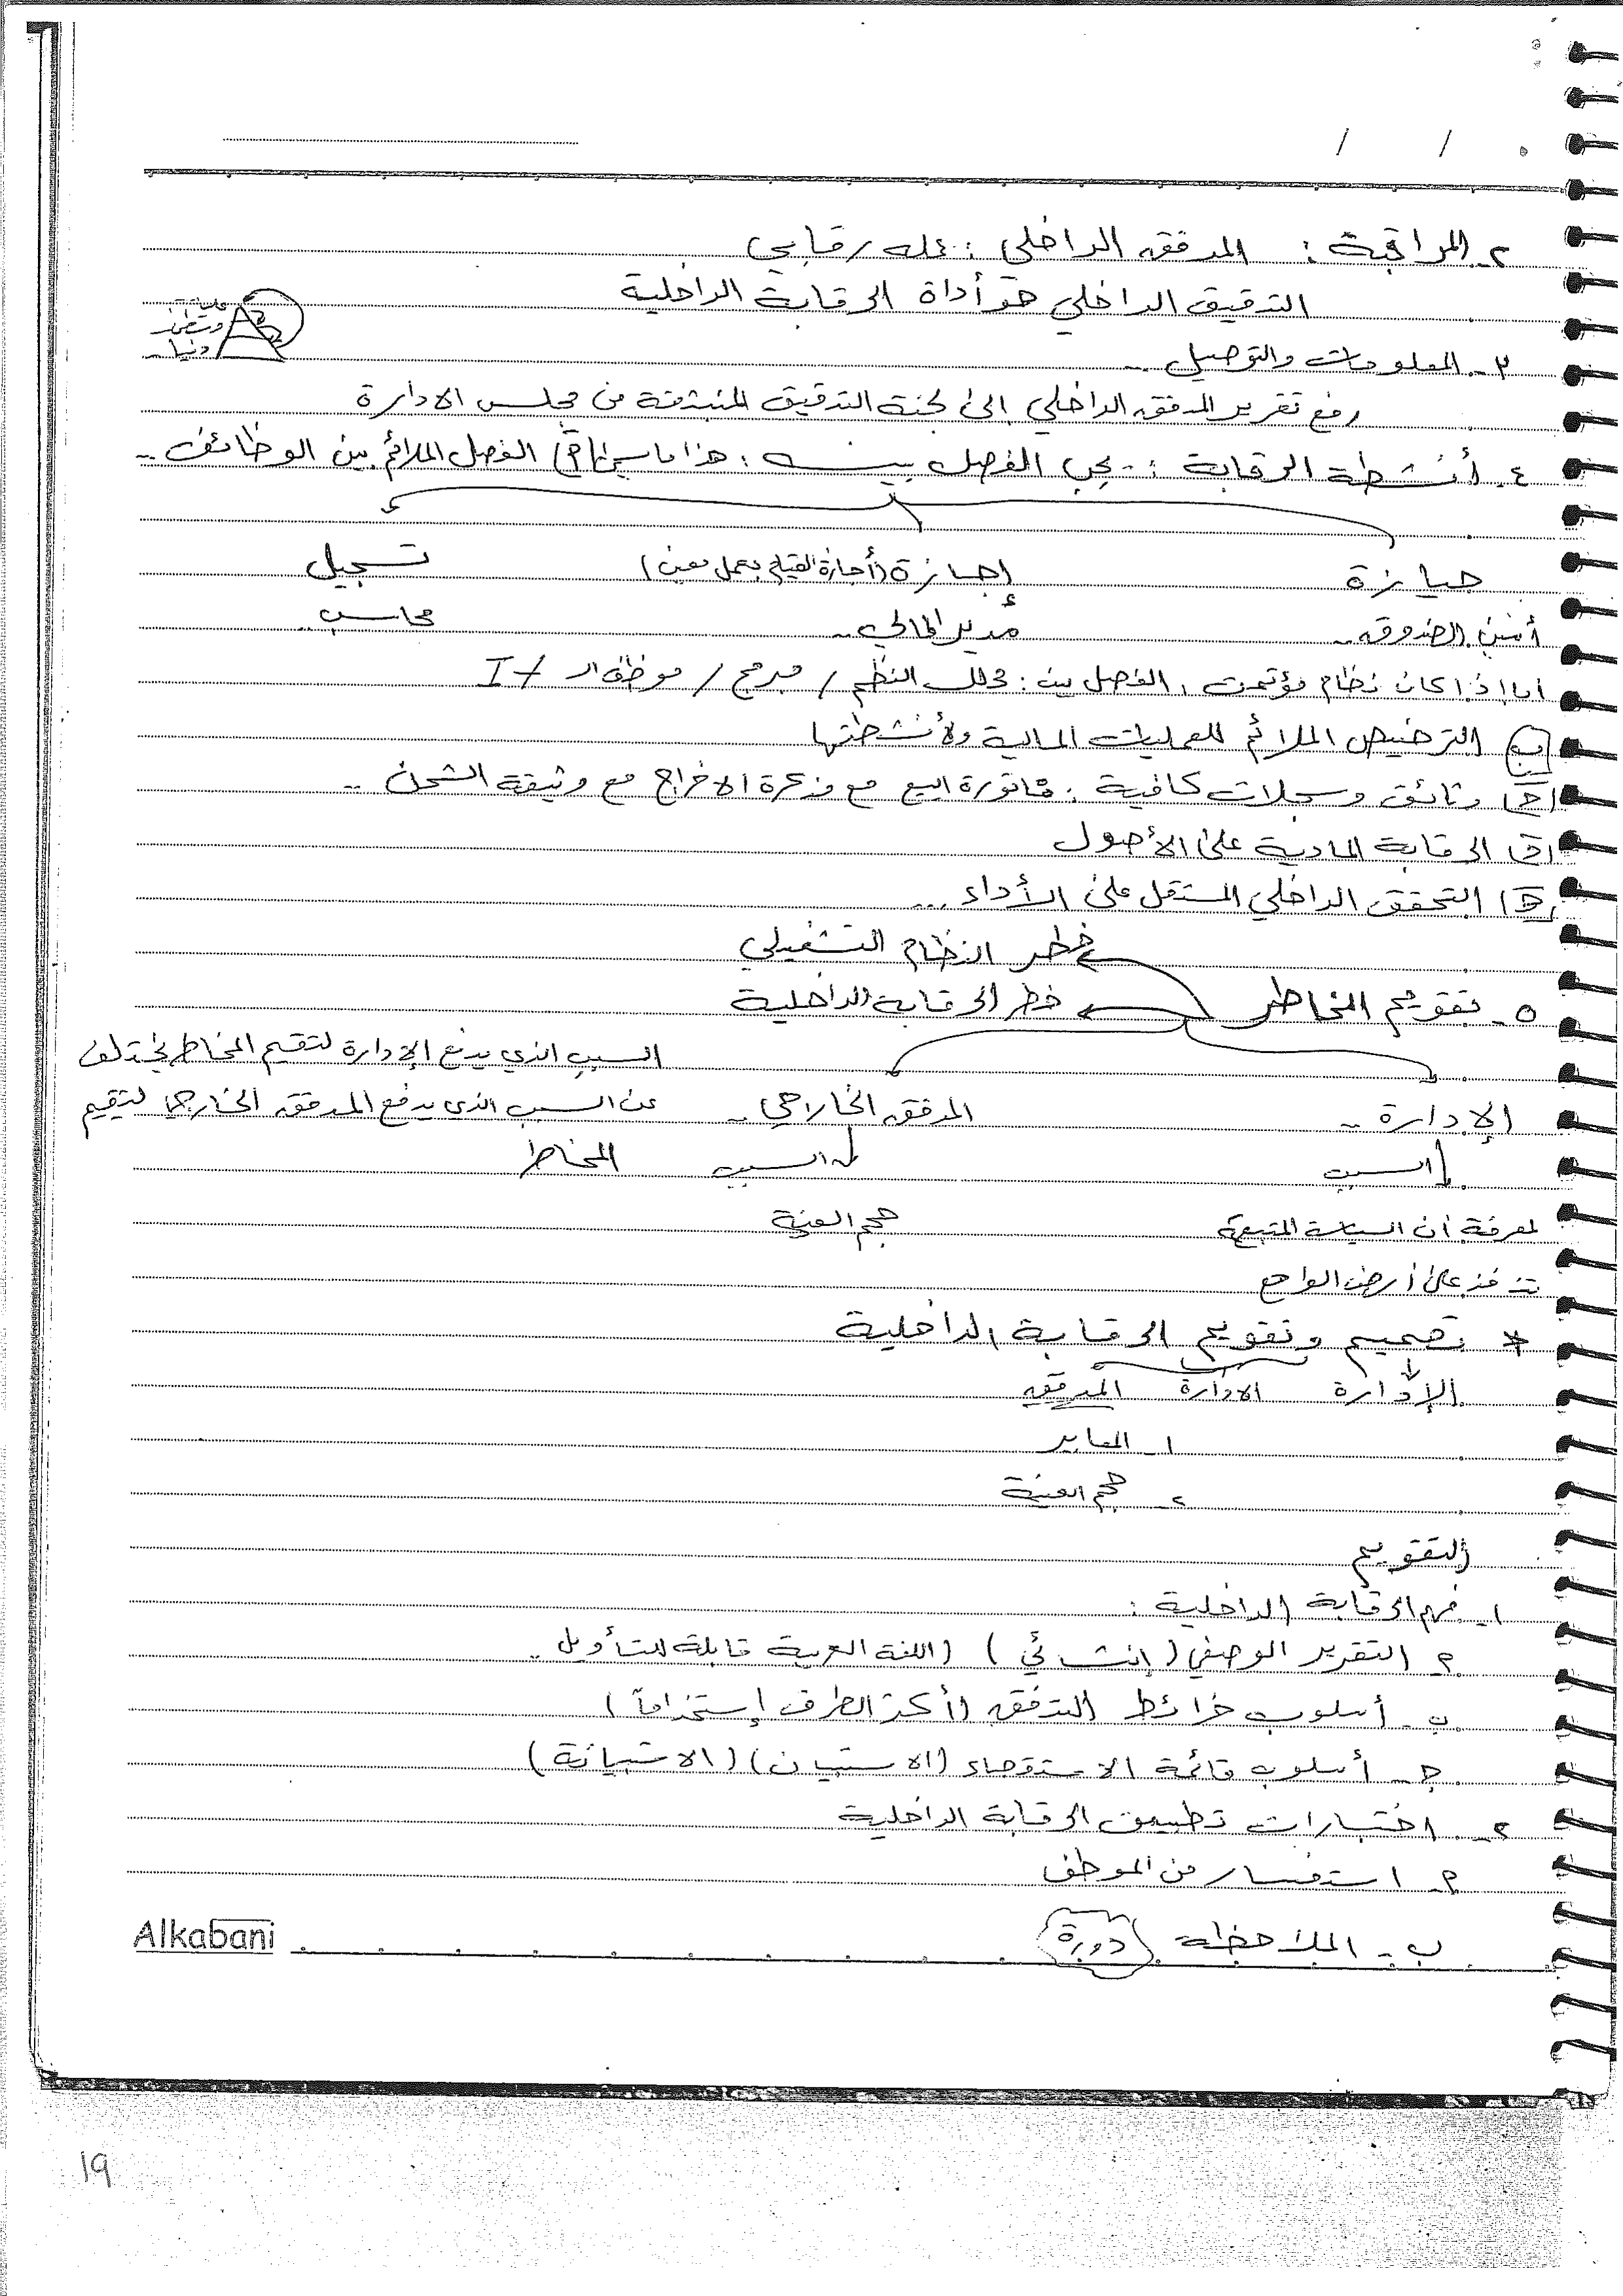 / /
٢- المراقبة : المدقق الداخلي : عمله رقابي
التدقيق الداخلي هو أداة الرقابة الداخلية
٣- المعلومات والتوصيل ..
رفع تقرير المدقق الداخلي إلى لجنة التدقيق المنبثقة من مجلس الادارة
٤- أنشطة الرقابة : يجب الفصل بين : هذا ما يسمى الفصل الملائم بين الوظائف ..
حيازة إجازة (أجازة القيام بعمل معين) تسجيل
أمين الصندوق .. مدير المالي .. محاسب ..
أما اذا كان نظام مؤتمت : الفصل بين : محلل النظم / مبرمج / موظف الـ IT
ب) الترخيص الملائم للعمليات المالية ولأنشطتها
ج) وثائق وسجلات كافية : فاتورة البيع مع مذكرة الاخراج مع وثيقة الشحن ..
د) الرقابة المادية على الأصول
هـ) التحقق الداخلي المستقل على الأداء ...
خطر النظام التشغيلي
٥- تقويم المخاطر خطر الرقابة الداخلية
السبب الذي يدفع الإدارة لتقييم المخاطر يختلف
الإدارة .. المدقق الخارجي .. عن السبب الذي يدفع المدقق الخارجي لتقييم
السبب السبب المخاطر
لمعرفة أن السياسة المتبعة حجم العينة
تنفذ على أرض الواقع
* تصميم وتقويم الرقابة الداخلية
الإدارة الادارة المدقق
١- المعايير
٢- حجم العينة
التقويم
١- فهم الرقابة الداخلية :
أ- التقرير الوصفي (إنشائي) (اللغة العربية قابلة للتأويل ..
ب- أسلوب خرائط التدفق (أكثر الطرق إستخداماً)
ج- أسلوب قائمة الاستقصاء (الاستبيان) (الاستبيانة)
٢- اختبارات تطبيق الرقابة الداخلية
أ- استفسار من الموظف
ب- الملاحظة (دورة)
Alkabani
19